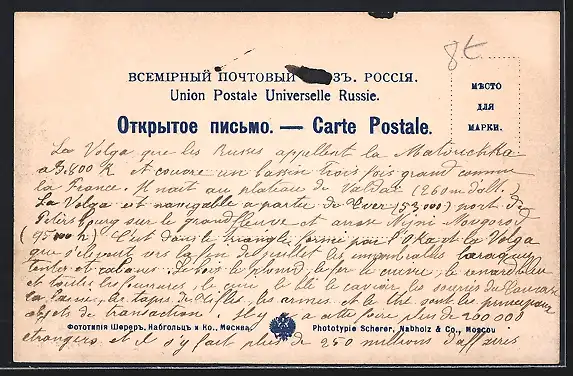 8t
ВСЕМІРНЫЙ ПОЧТОВЫЙ ЗЪ. РОССІЯ.
Union Postale Universelle Russie.
МѢСТО
ДЛЯ
МАРКИ.
Открытое письмо. — Carte Postale.
La Volga que les Russes appellent la Matouchka
a 3.800 K et couvre un bassin trois fois grand comme
la France. Il nait au plateau de Valdaï (260 m d'alt.)
La Volga est navigable a partir de Tver (53000) port de
Petersbourg sur le grand fleuve et arose Nijni Novgorod
(95000 h) C'est dans le triangle formé par l'Oka et la Volga
que s'elevent vers la fin de juillet les innombrables baraques
tentes et cabanes le bois le plomb, le fer le cuivre, le renard bleu
et toutes les fourrures, le cuir, le blé le caviar, les soieries du Caucase
la laine, les tapis de Tiflis, les armes et le thé sont les principaux
objets de transaction. Il y a cette foire plus de 200 000
étrangers et il s'y fait plus de 250 millions d'affaires
Фототипія Шереръ, Набгольцъ и Ко., Москва.
Phototypie Scherer, Nabholz & Co., Moscou